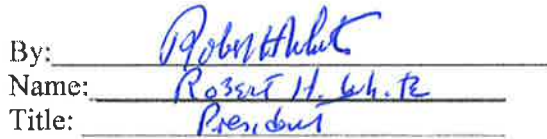 By: Robert H White
Name: Robert H. White
Title: President